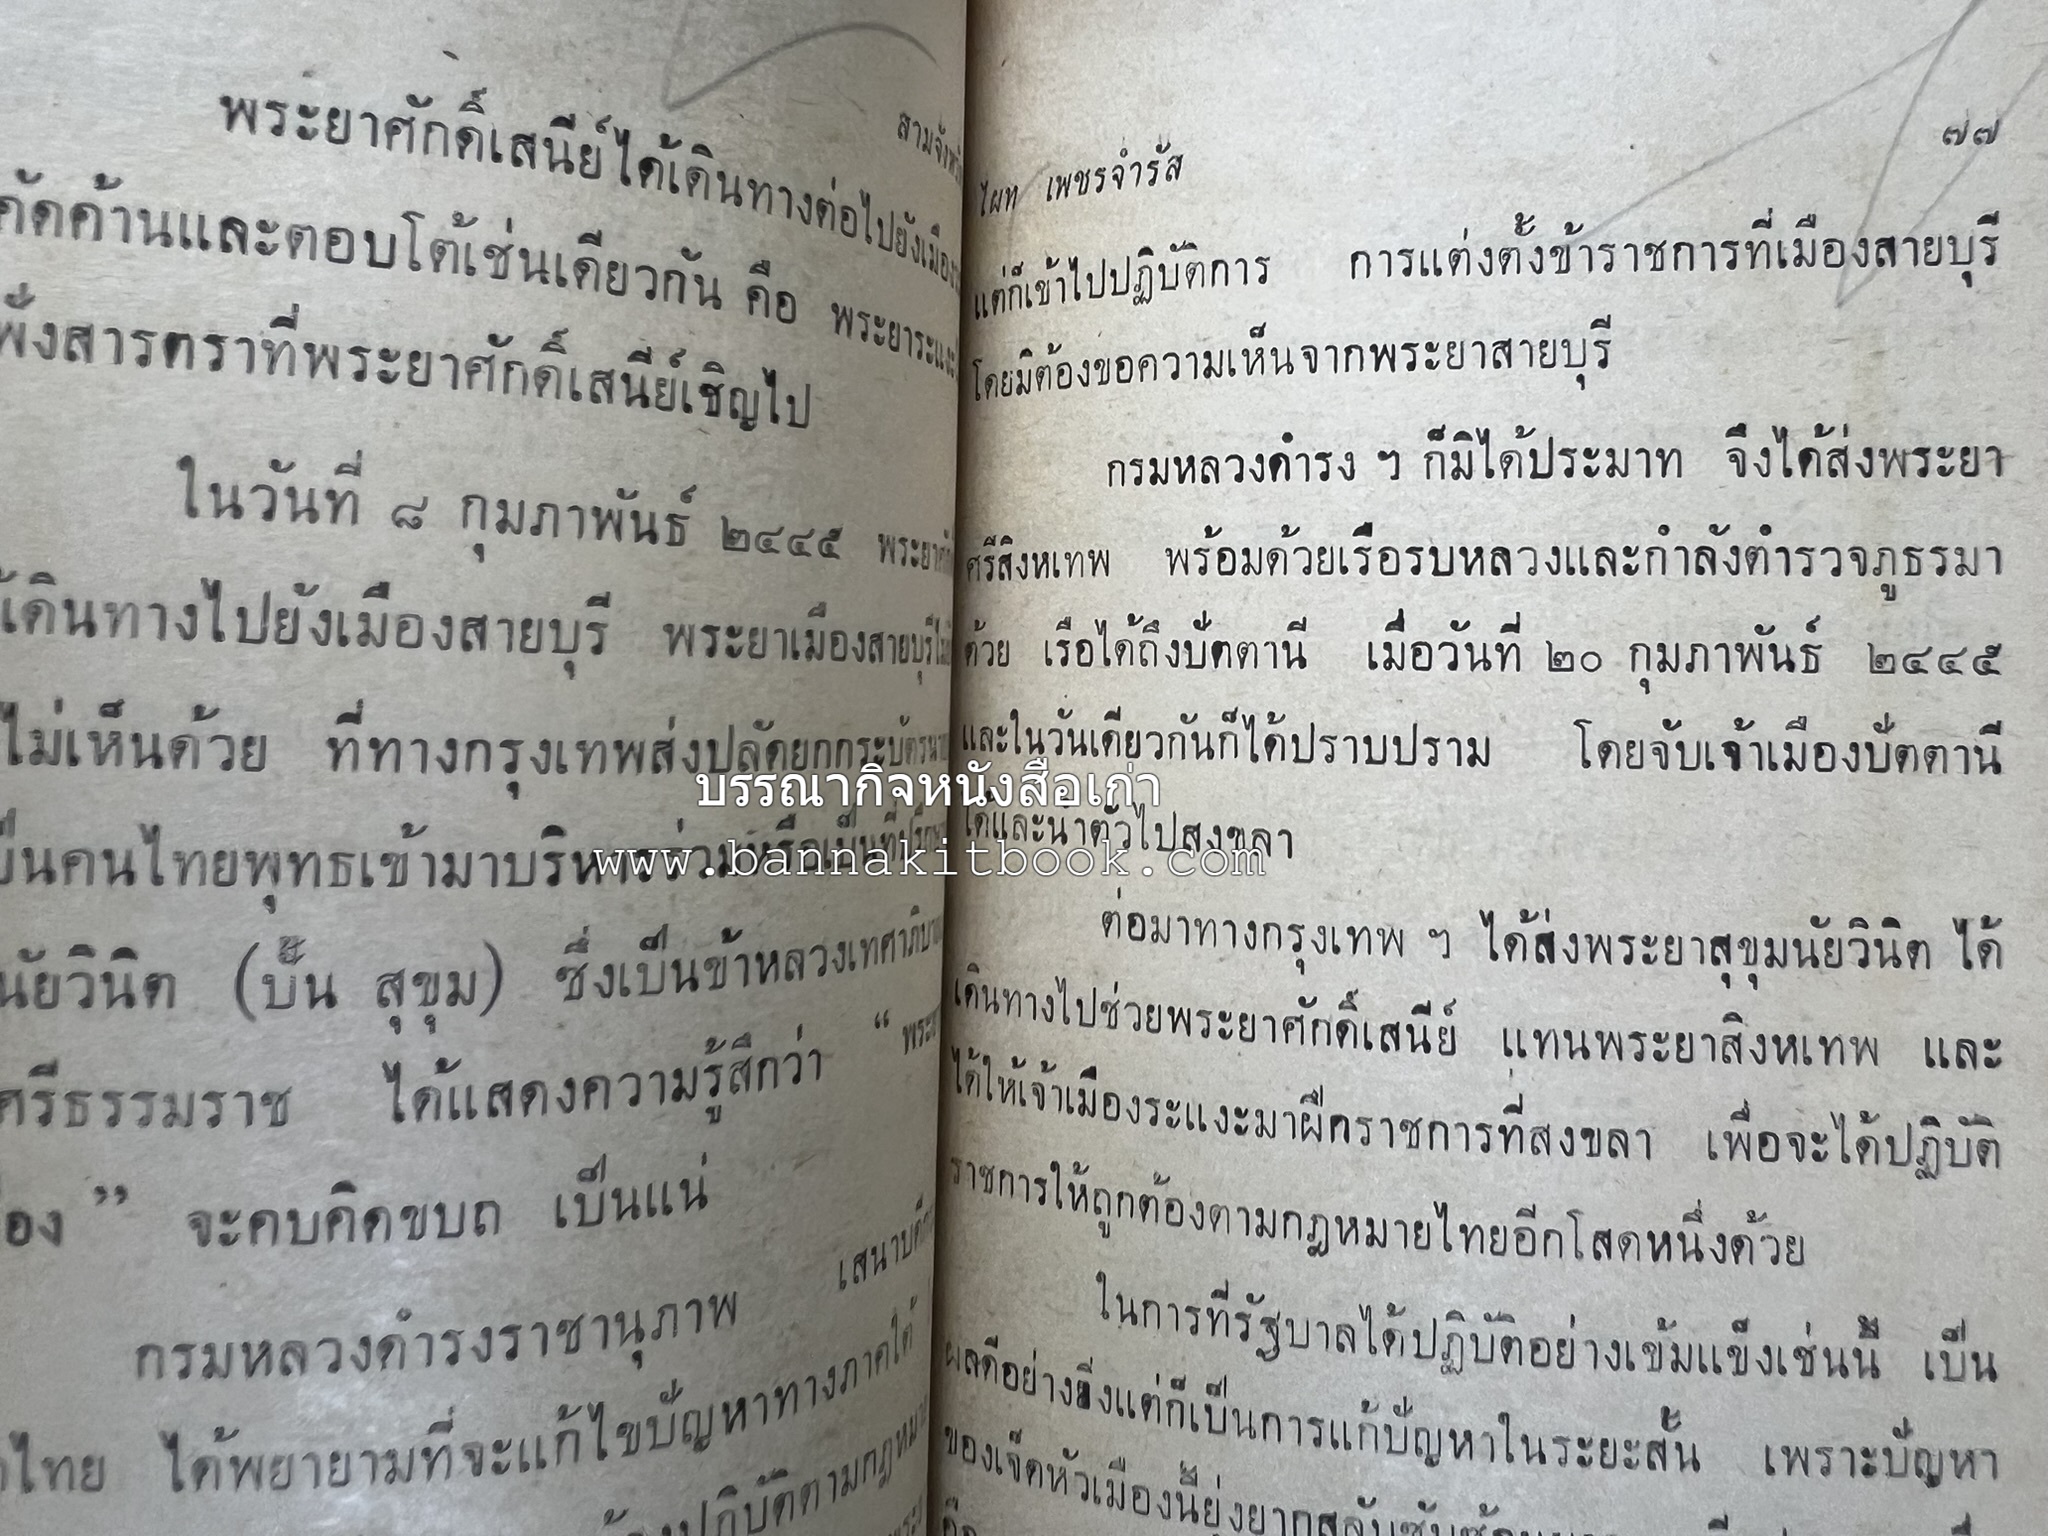 พระยาศักดิ์เสนีย์ได้เดินทางต่อไปยังเมือง
คัดค้านและตอบโต้เช่นเดียวกัน คือ พระยาระแงะ
ฟังสารตราที่พระยาศักดิ์เสนีย์เชิญไป
ในวันที่ ๘ กุมภาพันธ์ ๒๔๔๕
เดินทางไปยังเมืองสายบุรี พระยาเมืองสายบุรี
ไม่เห็นด้วย ที่ทางกรุงเทพส่งปลัดยกกระบัตร
เป็นคนไทยพุทธเข้ามาบริหารร่วมหรือเป็นที่ปรึกษา
นัยวินิต (ปั้น สุขุม) ซึ่งเป็นข้าหลวงเทศาภิบาล
ศรีธรรมราช ได้แสดงความรู้สึกว่า “
” จะคบคิดขบถ เป็นแน่
กรมหลวงดำรงราชานุภาพ
ไทย ได้พยายามที่จะแก้ไขปัญหาทางภาคใต้
ปฏิบัติตามกฎหมาย
๗๗
ไผท เพชรจำรัส
แต่ก็เข้าไปปฏิบัติการ การแต่งตั้งข้าราชการที่เมืองสายบุรี
โดยมิต้องขอความเห็นจากพระยาสายบุรี
กรมหลวงดำรง ฯ ก็มิได้ประมาท จึงได้ส่งพระยา
ศรีสิงหเทพ พร้อมด้วยเรือรบหลวงและกำลังตำรวจภูธรมา
ด้วย เรือได้ถึงปัตตานี เมื่อวันที่ ๒๐ กุมภาพันธ์ ๒๔๔๕
และในวันเดียวกันก็ได้ปราบปราม โดยจับเจ้าเมืองปัตตานี
ได้และนำตัวไปสงขลา
ต่อมาทางกรุงเทพ ฯ ได้ส่งพระยาสุขุมนัยวินิต ได้
เดินทางไปช่วยพระยาศักดิ์เสนีย์ แทนพระยาสิงหเทพ และ
ได้ให้เจ้าเมืองระแงะมาฝึกราชการที่สงขลา เพื่อจะได้ปฏิบัติ
ราชการให้ถูกต้องตามกฎหมายไทยอีกโสดหนึ่งด้วย
ในการที่รัฐบาลได้ปฏิบัติอย่างเข้มแข็งเช่นนี้ เป็น
ผลดีอย่างยิ่งแต่ก็เป็นการแก้ปัญหาในระยะสั้น เพราะปัญหา
ของเจ็ดหัวเมืองนี้ยุ่งยากสลับซับซ้อน
บรรณากิจหนังสือเก่า
www.bannakitbook.com